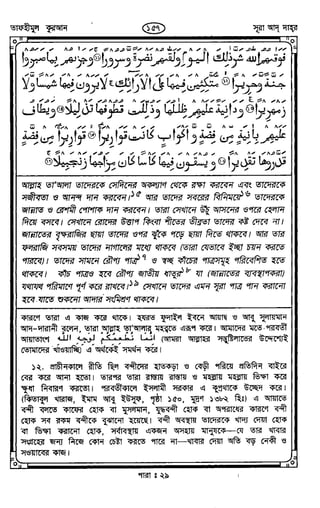 তাফহীমুল কুরআন
১৫৭
সূরা আদ্ দাহর
فَوَقٰىهُمُ اللّٰهُ شَرَّ ذٰلِكَ الْيَوْمِ وَلَقّٰىهُمْ نَضْرَةً وَّسُرُوْرًا ۝ وَجَزٰىهُمْ بِمَا صَبَرُوْا
جَنَّةً وَّحَرِيْرًا ۝ مُّتَّكِـِٕيْنَ فِيْهَا عَلَى الْاَرَآئِكِ لَا يَرَوْنَ فِيْهَا شَمْسًا وَّلَا
زَمْهَرِيْرًا ۝ وَدَانِيَةً عَلَيْهِمْ ظِلٰلُهَا وَذُلِّلَتْ قُطُوْفُهَا تَذْلِيْلًا ۝ وَيُطَافُ
عَلَيْهِمْ بِاٰنِيَةٍ مِّنْ فِضَّةٍ وَّاَكْوَابٍ كَانَتْ قَوَارِيْرَا ۝ قَوَارِيْرَا مِنْ فِضَّةٍ
قَدَّرُوْهَا تَقْدِيْرًا ۝ وَيُسْقَوْنَ فِيْهَا كَاْسًا كَانَ مِزَاجُهَا زَنْجَبِيْلًا ۝
আল্লাহ তা'আলা তাদেরকে সেদিনের অকল্যাণ থেকে রক্ষা করবেন এবং তাদেরকে
সজীবতা ও আনন্দ দান করবেন। আর তাদের সবরের বিনিময়ে তাদেরকে
জান্নাত ও রেশমী পোশাক দান করবেন। তারা সেখানে উঁচু আসনের ওপরে হেলান
দিয়ে বসবে। সেখানে রোদের উত্তাপ কিংবা শীতের তীব্রতা তাদের কষ্ট দেবে না।
জান্নাতের বৃক্ষরাজির ছায়া তাদের ওপর ঝুঁকে পড়ে ছায়া দিতে থাকবে। আর তার
ফলরাজি সবসময় তাদের নাগালের মধ্যে থাকবে (তারা যেভাবে ইচ্ছা চয়ন করতে
পারবে)। তাদের সামনে রৌপ্য পাত্র ও স্বচ্ছ কাঁচের পাত্রসমূহ পরিবেশিত হতে
থাকবে। কাঁচ পাত্রও হবে রৌপ্য জাতীয় ধাতুর যা (জান্নাতের ব্যবস্থাপকরা)
যথাযথ পরিমাণে পূর্ণ করে রাখবে। সেখানে তাদের এমন সূরা পাত্র পান করানো
হবে যাতে শুকনো আদার সংমিশ্রণ থাকবে।
কারণে তারা এ কাজ করে থাকে। হযরত ফুদাইল ইবনে আয়ায ও আবু সুলায়মান
আদ-দারানী বলেন, তারা আল্লাহ তা'আলার মহব্বতে এরূপ করে। আমাদের মতে পরবর্তী
আয়াতাংশ اِنَّمَا نُطْعِمُكُمْ لِوَجْهِ اللّٰهِ (আমরা আল্লাহর সন্তুষ্টিলাভের উদ্দেশ্যেই
তোমাদের খাওয়াচ্ছি) এ অর্থকেই সমর্থন করে।
১২. প্রাচীনকালে রীতি ছিল বন্দীদের হাতকড়া ও বেড়ী পরিয়ে প্রতিদিন বাইরে
বের করে আনা হতো। তারপর তারা রাস্তায় রাস্তায় ও মহল্লায় মহল্লায় ভিক্ষা করে
ক্ষুধা নিবারণ করতো। পরবর্তীকালে ইসলামী সরকার এ কুপ্রথাকে উচ্ছেদ করে।
(কিতাবুল খারাজ, ইমাম আবু ইউসুফ, পৃষ্ঠা ১৫০, মুদ্রণ ১৩৮২ হিঃ) এ আয়াতে
বন্দী বলতে কাফের হোক বা মুসলমান, যুদ্ধবন্দী হোক বা অপরাধের কারণে বন্দী
হোক সব রকম বন্দীকে বুঝানো হয়েছে। বন্দী অবস্থায় তাদেরকে খাদ্য দেয়া হোক
বা ভিক্ষা করানো হোক, সর্বাবস্থায় একজন অসহায় মানুষকে—যে তার খাবার
সংগ্রহের জন্য নিজে কোন চেষ্টা করতে পারে না—খাবার দেয়া অতি বড় নেকী ও
সওয়াবের কাজ।
পারা : ২৯